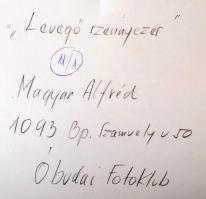 „Levegő szennyezés"
11/1
Magyar Alfréd
1093 Bp. Szamuely u 50
Óbudai Fotoklub